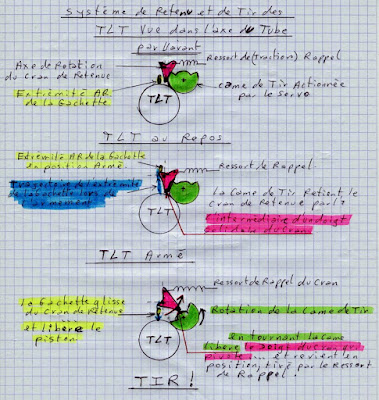 Système de Retenu et de Tir des
TLT Vue dans l'axe du Tube
par l'avant
Axe de Rotation
du Cran de Retenue
Ressort de (Traction) Rappel
Extrémité AR
de la Gachette
Came de Tir Actionnée
par le servo
TLT
TLT au Repos
Extrémité AR de la Gachette
en position Armé
Ressort de Rappel
Trajectoire de l'extrémité
de la Gachette lors de
l'armement
La Came de Tir Retient le
Cran de Retenue par l'
intermédiaire d'un doigt
solidaire du Cran
TLT
TLT Armé
Ressort de Rappel du Cran
la Gachette glisse
du Cran de Retenue
et libère le
piston
Rotation de la Came de Tir
TLT
en tournant la came
libère le doigt du cran qui
pivote ... et revient en
position, tiré par le Ressort
de Rappel!
TIR!